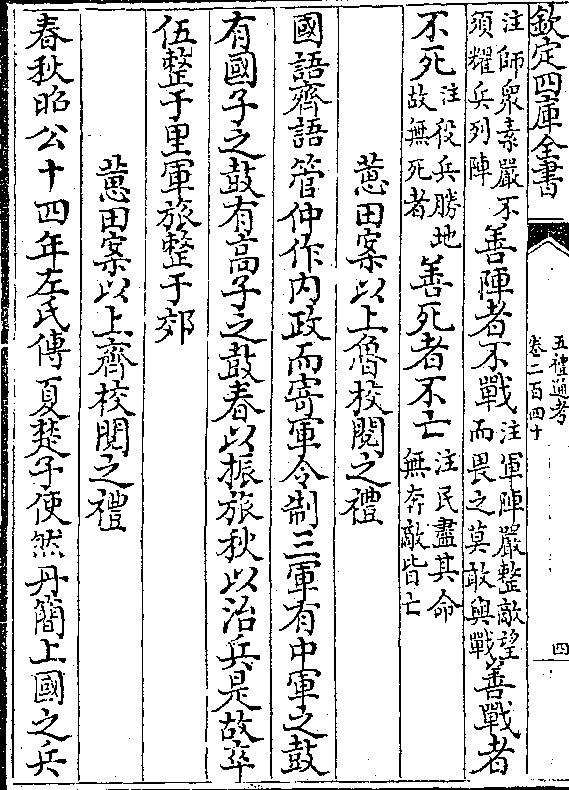 欽定四庫全書
五禮通考
卷二百四十
四
注師衆素嚴不
須耀兵列陣
善陣者不戰
注軍陣嚴整敵望
而畏之莫敢與戰
善戰者
不死
注投兵勝地
故無死者
善死者不亡
注民盡其命
無奔敵皆亡
蕙田案以上魯校閲之禮
國語齊語管仲作内政而寄軍令制三軍有中軍之鼓
有國子之鼓有高子之鼓春以振旅秋以治兵是故卒
伍整于里軍旅整于郊
蕙田案以上齊校閲之禮
春秋昭公十四年左氏傳夏楚子使然丹簡上國之兵